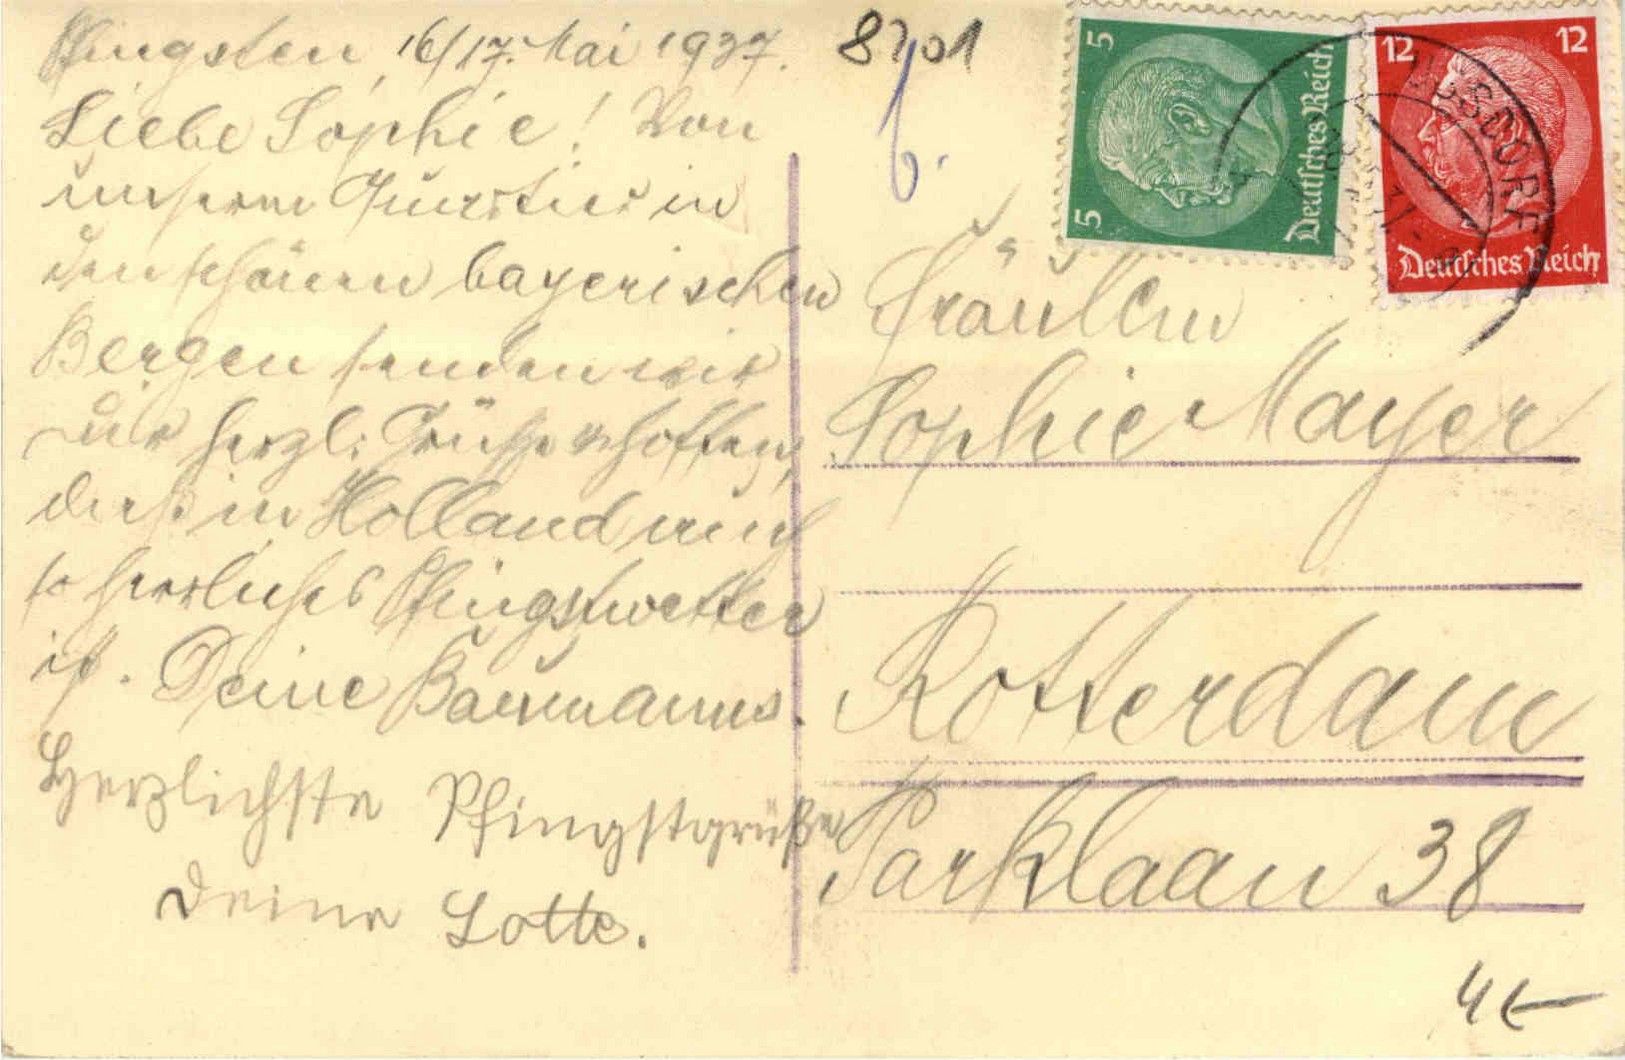 Pfingsten, 16/17. Mai 1937.
Liebe Sophie! Von
unserem Quartier in
den schönen bayerischen
Bergen senden wir
Dir herzl. Grüße u. hoffen,
daß in Holland auch
so herrliches Pfingstwetter
ist. Deine Baumanns.
Herzlichste Pfingstgrüße
Deine Lotte.
8201
6.
5
5
Deutsches Reich
12
12
Deutsches Reich
Fräulein
Sophie Mayer
Rotterdam
Parklaan 38
4€